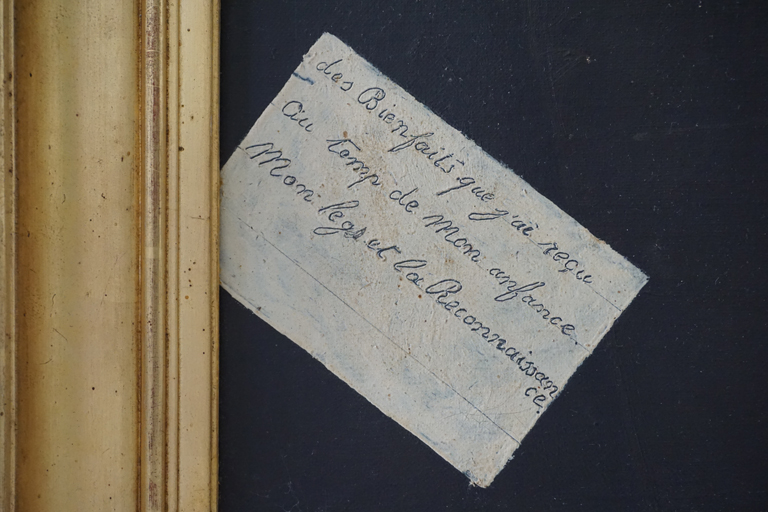 des Bienfaits que j'ai reçu
Au temp de Mon anfance.
Mon legs et la Reconnaissan
ce.